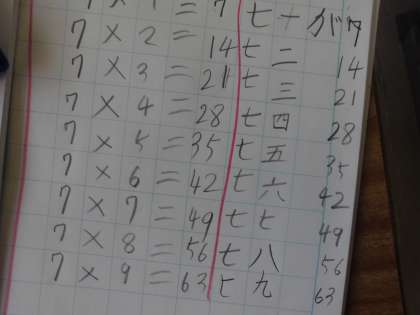 7 × 1 = 7 七 一 が 7
7 × 2 = 14 七 二 14
7 × 3 = 21 七 三 21
7 × 4 = 28 七 四 28
7 × 5 = 35 七 五 35
7 × 6 = 42 七 六 42
7 × 7 = 49 七 七 49
7 × 8 = 56 七 八 56
7 × 9 = 63 七 九 63